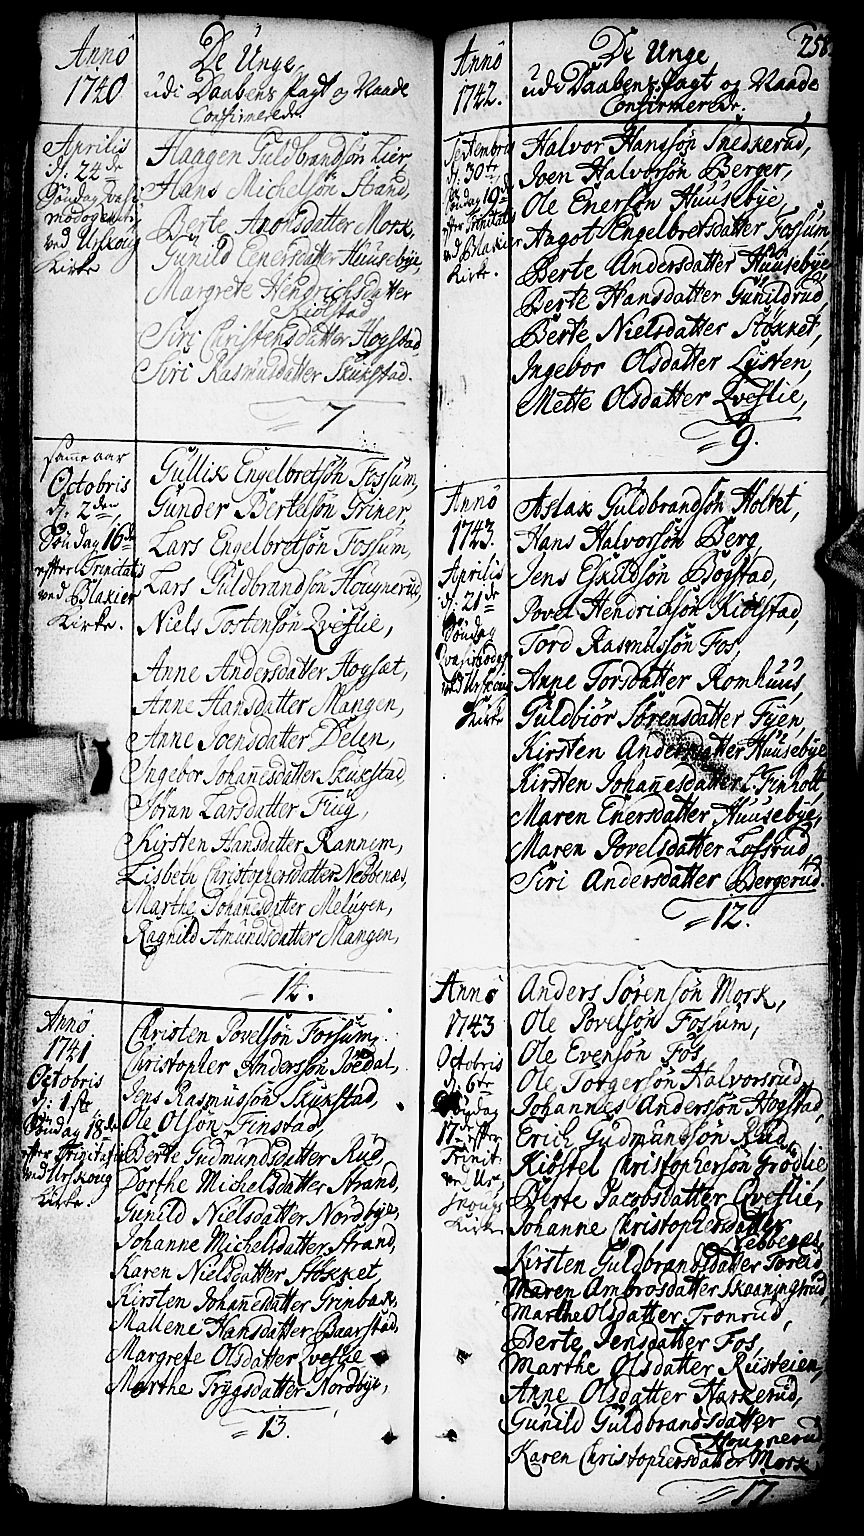 Annô
1740
De Unge,
udi Daabens Pagt og Naade
Confirmerede.
Aprilis
d: 24de
Søndag Qvasi
modogeniti
ved Urskoug
Kirke
Haagen Guldbrandsøn Lier,
Hans Michelsøn Strand,
Berte Aronsdatter Mork,
Gunild Enersdatter Huusebye,
Margrete Hendrichsdatter
Kiølstad
Siri Christensdatter Hogstad,
Siri Rasmusdatter Skukstad.
7
samme aar
Octobris
d: 2den
Søndag 16de
effter Trinitatis
ved Blakier
Kirke.
Gullik Engelbretsøn Fossum,
Gunder Bertelsøn Griner,
Lars Engelbretsøn Fossum,
Lars Guldbrandsøn Hougnerud,
Niels Tostensøn Qveslie,
Anne Andersdatter Hogsæt,
Anne Hansdatter Mangen,
Anne Joensdatter Delen,
Ingebor Johannesdatter Skukstad
Jøran Larsdatter Fiug,
Kirsten Hansdatter Rannem,
Lisbeth Christophersdatter Nebbenæs,
Marthe Johanesdatter Melugen,
Ragnild Amundsdatter Mangen,
14.
Annô
1741
Octobris
d: 1ste
Søndag 18de
efter Trinitatis
ved Urskoug
Kirke.
Christen Povelsøn Fossum,
Christopher Andersøn Joedal,
Jens Rasmussøn Skukstad,
Ole Olsøn Finstad,
Berte Gudmundsdatter Rud,
Dorthe Michelsdatter Strand,
Gunild Nielsdatter Nordbye,
Johanne Michelsdatter Strand,
Karen Nielsdatter Støkket,
Kirsten Johanesdatter Grinbak,
Mallene Hansdatter Baarstad,
Margrete Olsdatter Qveslie
Marthe Trygsdatter Nordbye,
13.
258.
Annô
1742.
De Unge
udi Daabens Pagt og Naade
Confirmerede.
Septembris
d: 30te
Søndag 19de
efter Trinitatis
ved Blakier
Kirke.
Halvor Hansøn Snekkerud,
Joen Halvorsøn Berger,
Ole Enersøn Huusebye,
Aagot Engelbretsdatter Fossum,
Berte Andersdatter Huusebye
Berte Hansdatter Gunildrud,
Berte Nielsdatter Støkket,
Ingebor Olsdatter Lysten,
Mette Olsdatter Qveslie,
9.
Annô
1743.
Aprilis
d: 21de
Søndag
Qvasimodog:
ved Urskoug
Kirke
Aslak Guldbrandsøn Holtet,
Hans Halvorsøn Berg,
Jens Eskildsøn Bogstad,
Povel Hendrichsøn Kiølstad,
Tord Rasmussøn Fos,
Anne Torsdatter Romhuus,
Guldbiør Sørensdatter Fyen,
Kirsten Andersdatter Huusebye
Kirsten Johanesdatter L: Finholt,
Maren Enersdatter Huusebye,
Maren Povelsdatter Lofsrud
Siri Andersdatter Bergerud.
12.
Annô
1743
Octobris
d: 6te
Søndag
17de effter
Trinit:
ved Ur-
skougs
Kirke
Anders Sørensøn Mork,
Ole Povelsøn Fossum,
Ole Evensøn Fos
Ole Torgersøn Halvorsrud,
Johannes Andersøn Hogstad,
Erich Gudmundsøn Rud,
Kiøstel Christophersøn Grødlie
Berte Jacobsdatter Qveslie,
Johanne Christophersdatter
Nebbenæs,
Kirsten Guldbrandsdatter Toreid,
Maren Ambrosdatter Skaaningsrud,
Marthe Olsdatter Tronrud,
Berte Jensdatter Fos
Marthe Olsdatter Rusteien,
Anne Olsdatter Harkerud,
Gunild Guldbrandsdatter
Hougnerud,
Karen Christophersdatter Mork,
17.